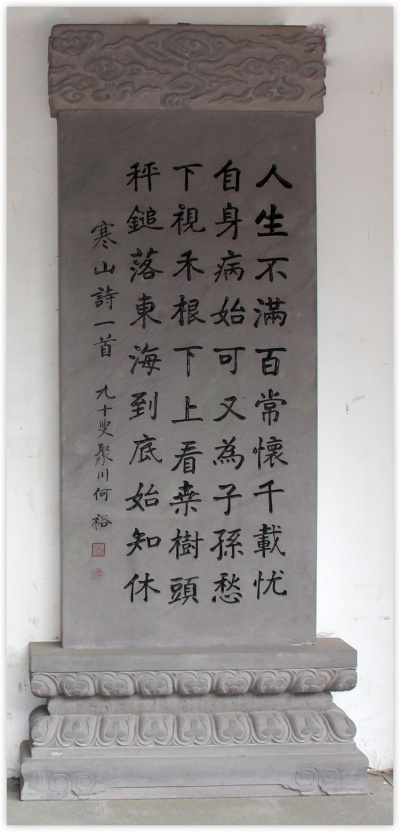 人生不滿百常懷千載忧
自身病始可又為子孫愁
下視禾根下上看桒樹頭
秤鎚落東海到底始知休
寒山詩一首
九十叟聚川何裕